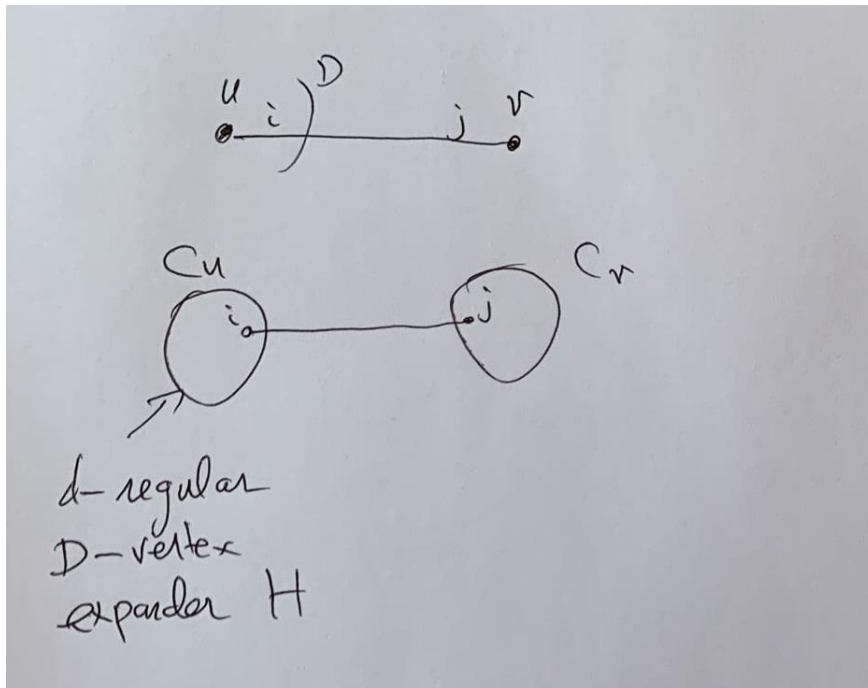 u i D j v
Cu Cv
i j
d-regular
D-vertex
expander H